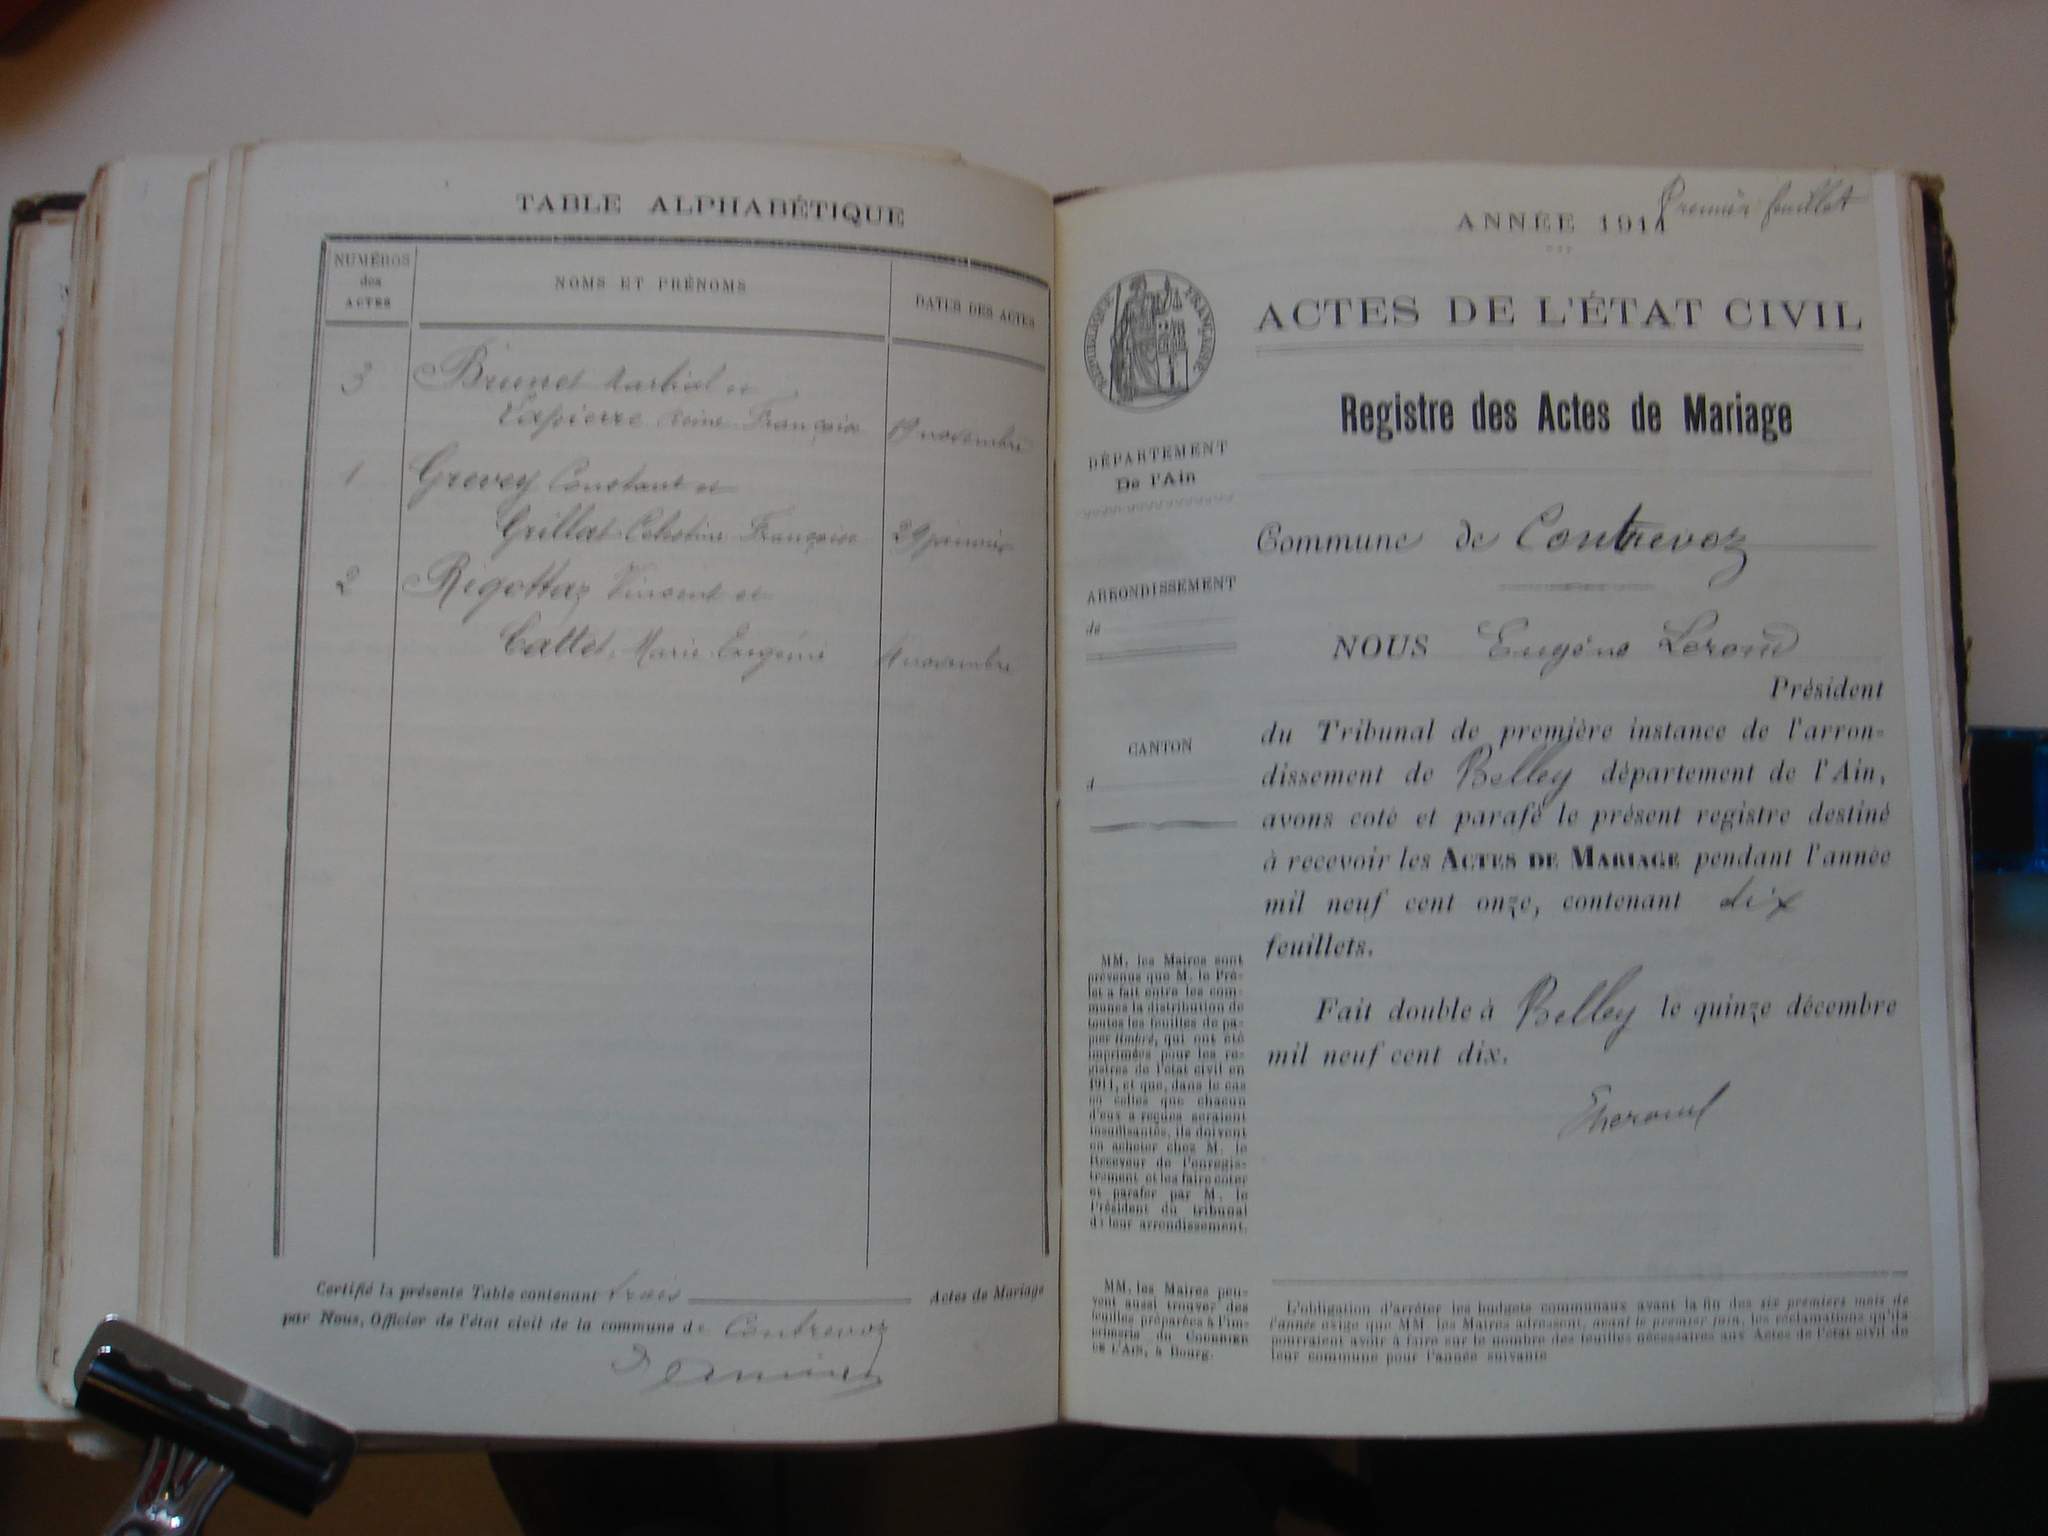 TABLE ALPHABÉTIQUE
NUMÉROS
des
ACTES
NOMS ET PRÉNOMS
DATES DES ACTES
3 Brunet Martial et
Lapierre Reine Françoise 19 novembre
1 Grevey Constant et
Grillat Célestine Françoise 29 janvier
2 Rigottaz Vincent et
Cattet Marie Eugénie 4 novembre
Certifié la présente Table contenant trois Actes de Mariage
par Nous, Officier de l'état civil de la commune de Contrevoz
Premier feuillet
ANNÉE 1911
RÉPUBLIQUE FRANÇAISE
ACTES DE L'ÉTAT CIVIL
Registre des Actes de Mariage
DÉPARTEMENT
De l'Ain
Commune de Contrevoz
ARRONDISSEMENT
de
NOUS Eugène
Président
du Tribunal de première instance de l'arron-
CANTON
d
dissement de Belley département de l'Ain,
avons coté et parafé le présent registre destiné
à recevoir les ACTES DE MARIAGE pendant l'année
mil neuf cent onze, contenant dix
feuillets.
Fait double à Belley le quinze décembre
mil neuf cent dix.
MM. les Maires sont
prévenus que M. le Pré-
fet a fait entre les com-
munes la distribution de
toutes les feuilles de pa-
pier timbré, qui ont été
imprimées pour les re-
gistres de l'état civil en
1911, et que, dans le cas
où celles que chacun
d'eux a reçues seraient
insuffisantes, ils doivent
en acheter chez M. le
Receveur de l'enregis-
trement et les faire coter
et parafer par M. le
Président du tribunal
de leur arrondissement.
MM. les Maires peu-
vent aussi trouver des
feuilles préparées à l'im-
primerie du COURRIER
DE L'AIN, à Bourg.
L'obligation d'arrêter les budgets communaux avant la fin des six premiers mois de
l'année exige que MM. les Maires adressent, avant le premier juin, les réclamations qu'ils
pourraient avoir à faire sur le nombre des feuilles nécessaires aux Actes de l'état civil de
leur commune pour l'année suivante